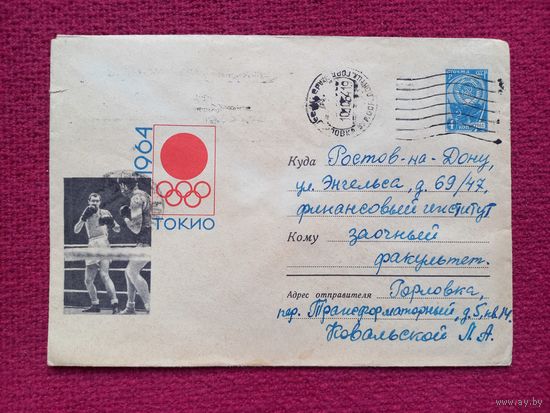 1964
ТОКИО
Куда Ростов-на-Дону,
ул. Энгельса, д. 69/47,
финансовый институт
Кому заочный
факультет.
Адрес отправителя Горловка,
пер. Трансформаторный, д. 5, кв. 14.
Ковальской Л. А.
ay.by